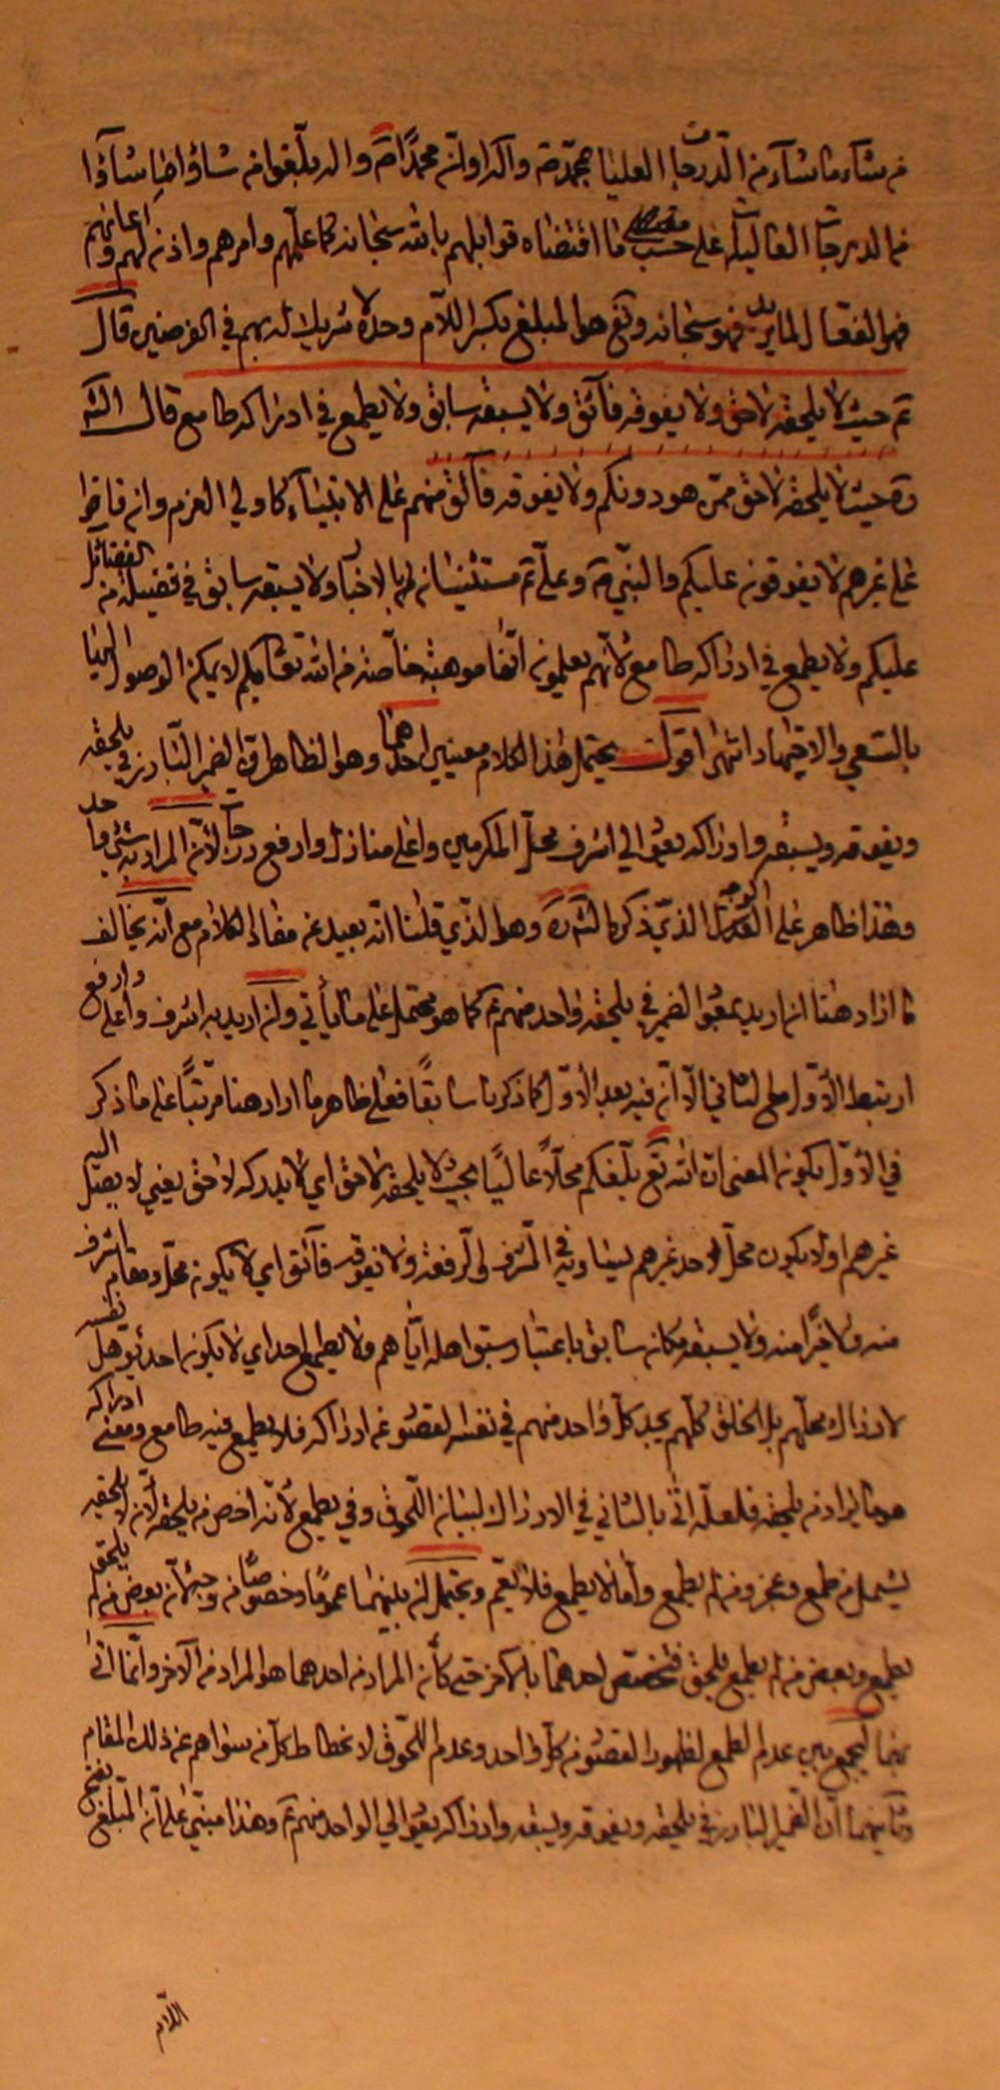 من شاء ما شاء من الدرجات العليا بمحمد ص وآله او ان محمدا ص واله يبلغوا من شاؤا ما شاؤا
من الدرجات العالية على حسب ما اقتضاه قوابلهم بالله سبحانه كما علمهم وامرهم واذن لهم واعانهم
فهو الفعال لما يريد فهو سبحانه وتع هو المبلغ بكسر اللام وحده لا شريك له بهم في الفرضين قال
ع حيث لا يلحقه لاحق ولا يفوقه فائق ولا يسبقه سابق ولا يطمع في ادراكه طامع قال الش
ره حيث لا يلحقه لاحق ممن هو دونكم ولا يفوقه فائق منهم على الانبياء كاولي العزم وانه فاقوا
على غيرهم لا يفوقونه عليكم والنبي ص وعلي ع مستثنيان بالاخبار ولا يسبقه سابق في فضيلة من الفضائل
عليكم ولا يطمع في ادراكه طامع لانهم يعلمون انها موهبة خاصة من الله تعا بكم لا يمكن الوصول اليها
بالسعي والاجتهاد انتهى اقول يحتمل هذا الكلام معنيين احدهما وهو الظاهر ان الضمير البارز في يلحقه
ويفوقه ويسبقه وادراكه يعود الى اشرف محل المكرمين واعلى منازل وارفع درجات لان المراد به شيء واحد
وهذا ظاهر على الوجه الذي ذكره الش ره وهو الذي قلنا انه بعيد عن مفاد الكلام مع انه يخالف
ما اراد هنا ان اريد بعود الضمير في يلحقه واحد منهم ع كما هو محتمل على ما يأتي وان اريد به اشرف واعلى وارفع
ارتبط الاول مع الثاني الا ان فيه بعد الاول كما ذكرنا سابقا فعلى ظاهر ما اراد هنا مرتبا على ما ذكر
في الاول يكون المعنى ان الله تع بلغكم محلا عاليا بحيث لا يلحقه لاحق اي لا يدركه لاحق يعني لا يصل اليه
غيرهم او لا يكون محل احد غيرهم يساويه في الشرف والرفعة ولا يفوقه فائق اي لا يكون محل ومقام اشرف
منه ولا خيرا منه ولا يسبقه مكانه سابق باعتبار سبق اهله اياهم ولا يطمع احد اي لا يكون احد يؤهل نفسه
لادراك محلهم بل الخلق كلهم يجد كل واحد منهم في نفسه القصور عن ادراكه فلا يطمع فيه طامع ومعنى ادراكه
هو ما يراد من يلحقه فلعله اتى بالثاني في الادراك لبيان اللحوق وفي يطمع لانه اخص من يلحقه لان لا يلحقه
يشمل من طمع وعجز ومن لم يطمع واما لا يطمع فلا يعم ويحتمل ان بينهما عموما وخصوصا من وجه لان بعض من لم يلحق
يطمع وبعض من لم يطمع يلحق فتختص احدهما بالاخر حتى كأن المراد من احدهما هو المراد من الآخر وانما اتى
بهما ليجمع بين عدم الطمع لظهور القصور من كل واحد وعدم اللحوق لانحطاط كل من سواهم عن ذلك المقام
وثانيهما ان الضمير البارز في يلحقه ويفوقه ويسبقه وادراكه يعود الى الواحد منهم ع وهذا مبني على ان المبلغ بفتح
اللام